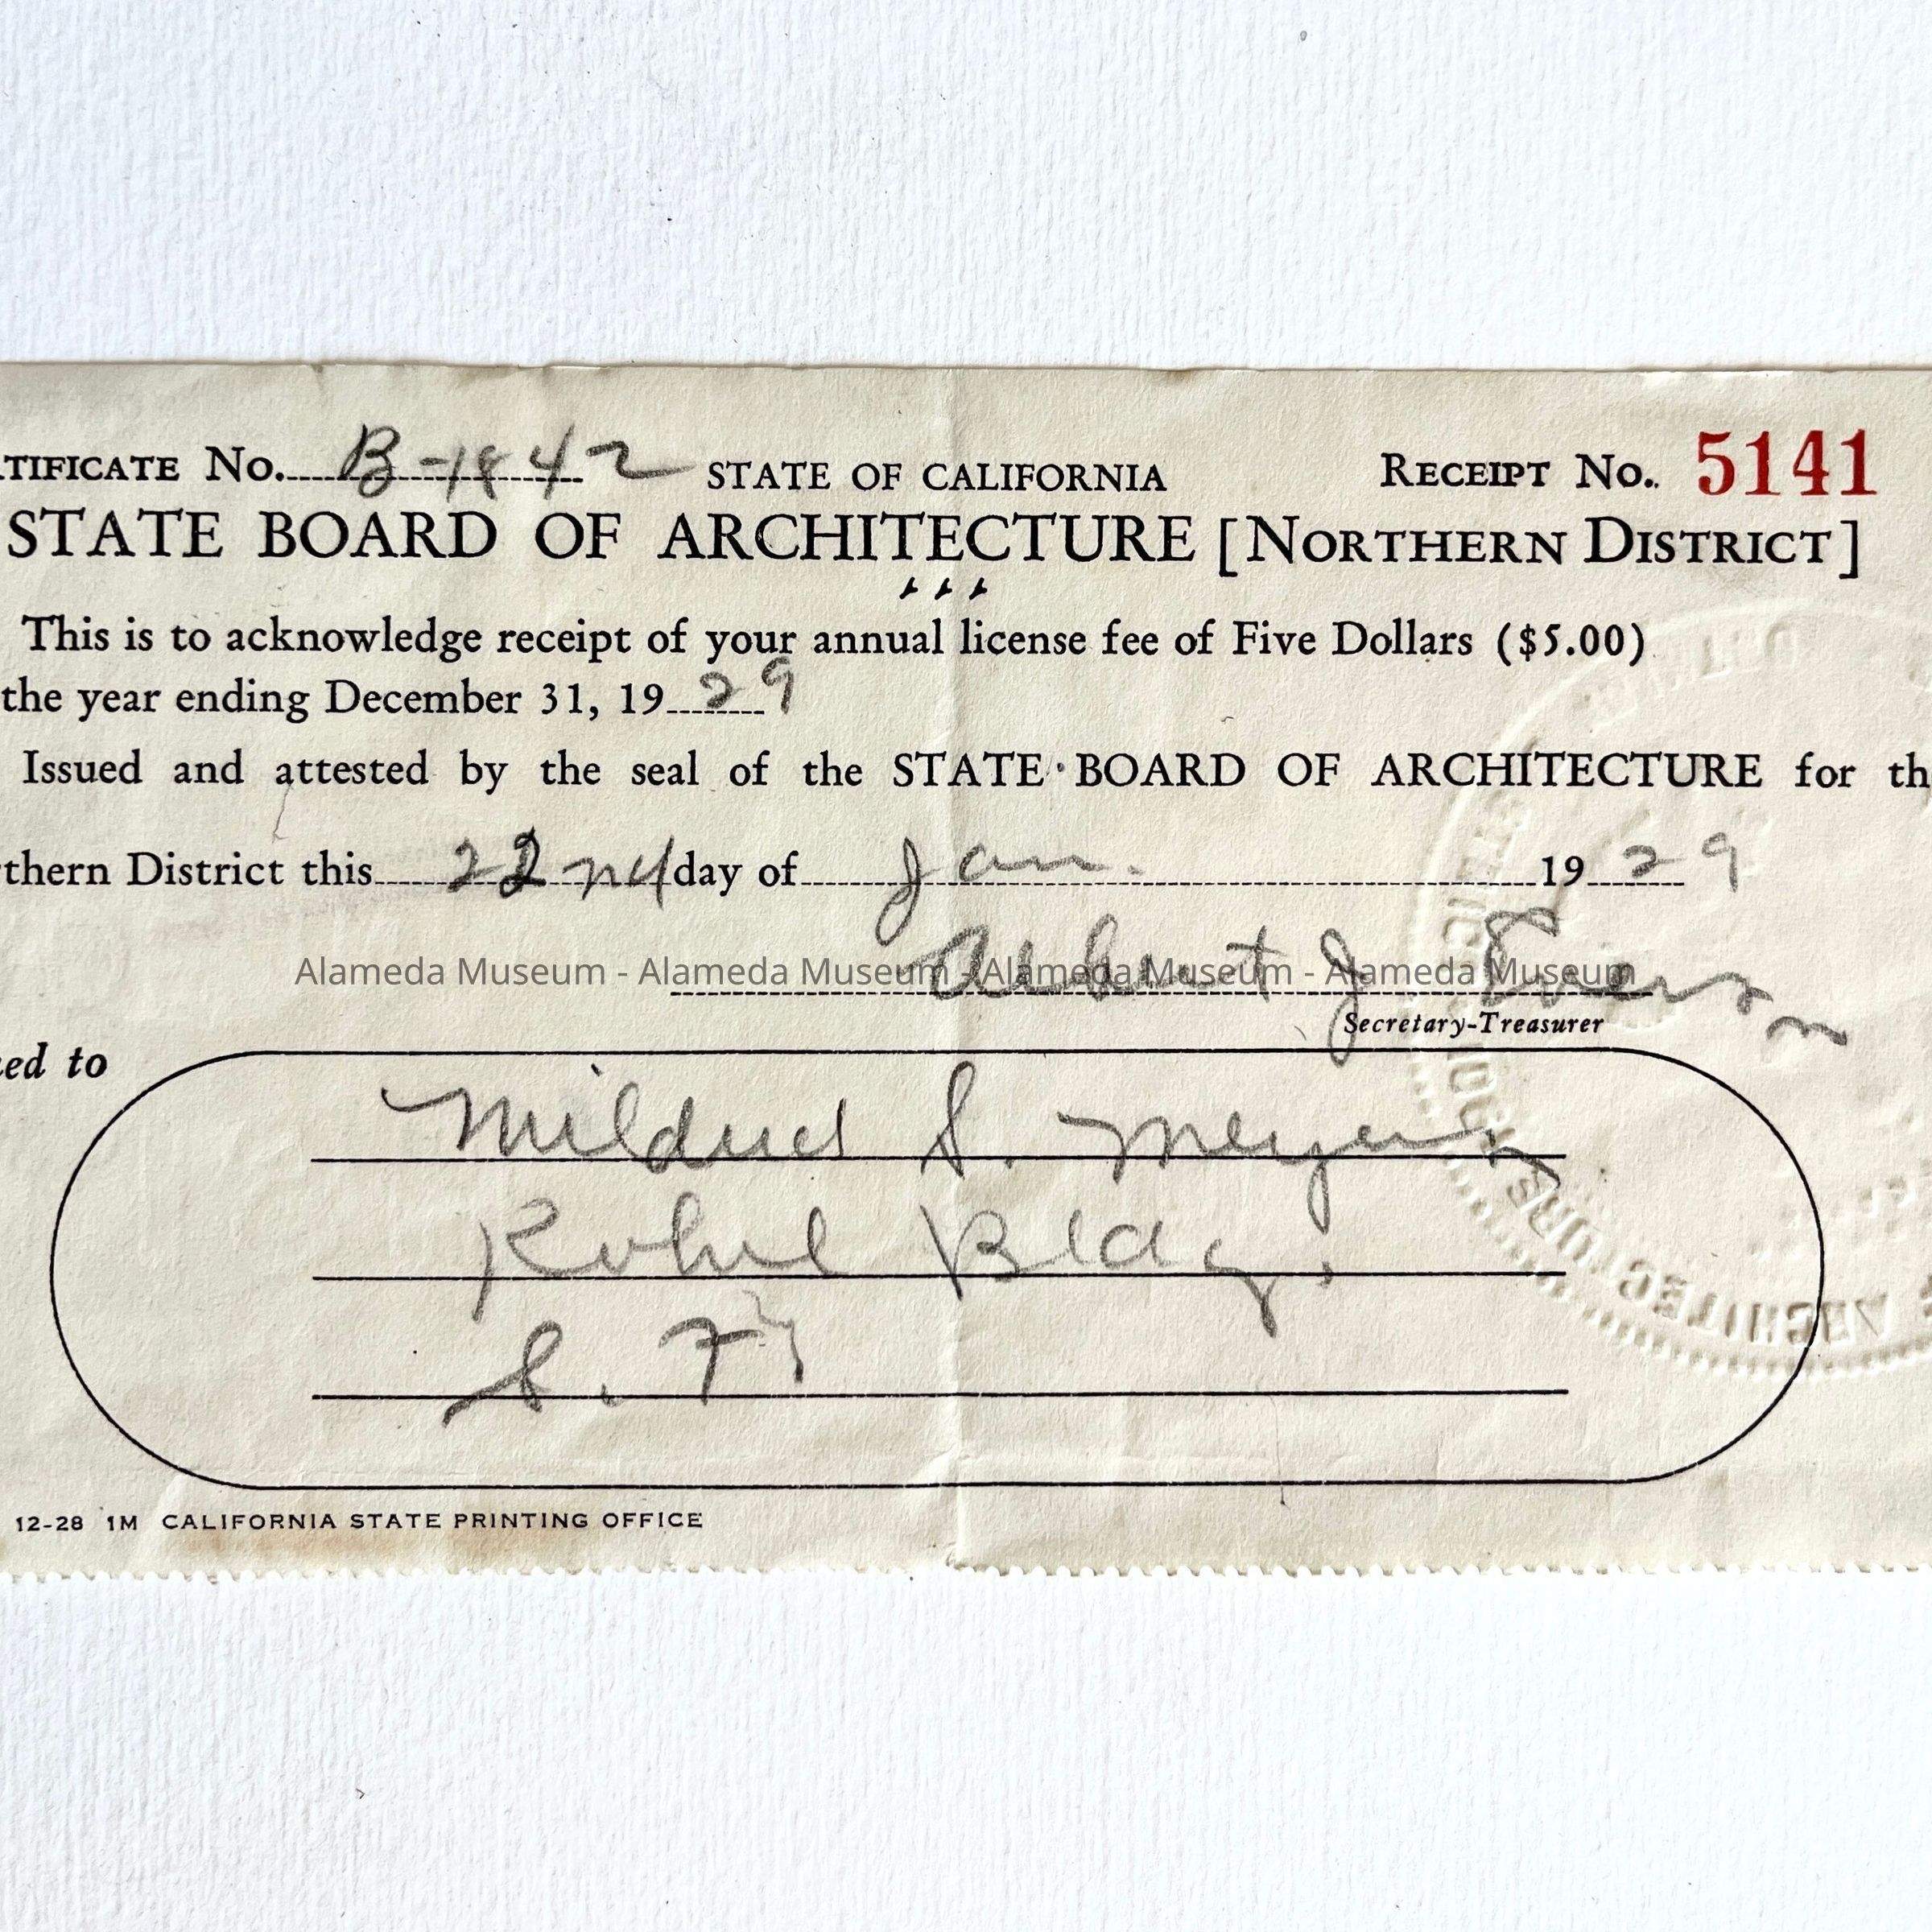 TIFICATE No. B-1842 STATE OF CALIFORNIA RECEIPT No. 5141
STATE BOARD OF ARCHITECTURE [NORTHERN DISTRICT]
This is to acknowledge receipt of your annual license fee of Five Dollars ($5.00)
the year ending December 31, 1929
Issued and attested by the seal of the STATE BOARD OF ARCHITECTURE for th
thern District this 22nd day of Jan. 1929
Albert J. Evers
Alameda Museum - Alameda Museum - Alameda Museum - Alameda Museum
Secretary-Treasurer
ed to
Mildred S. Meyers
Kohl Bldg.
S. F.
12-28 1M CALIFORNIA STATE PRINTING OFFICE